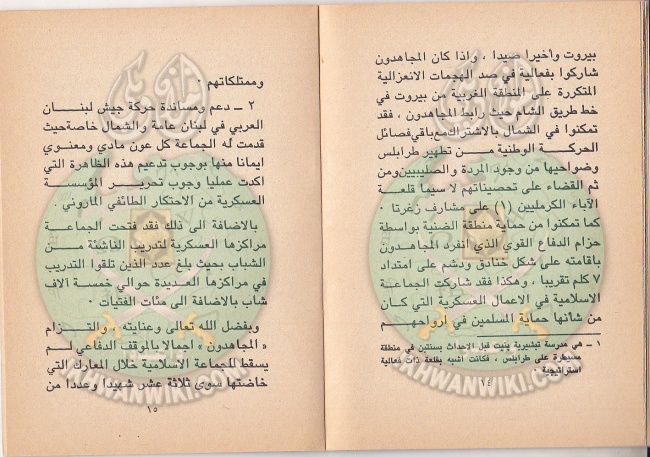 بيروت وأخيرا صيدا ، واذا كان المجاهدون
شاركوا بفعالية في صد الهجمات الانعزالية
المتكررة على المنطقة الغربية من بيروت في
خط طريق الشام حيث رابط المجاهدون ، فقد
تمكنوا في الشمال بالاشتراك مع باقي فصائل
الحركة الوطنية مــن تطهير طرابلس
وضواحيها من وجود المردة والصليبيين ومن
ثم القضاء على تحصيناتهم لا سيما قلعة
الآباء الكرمليين (١) على مشارف زغرتا ٠
كما تمكنوا من حماية منطقة الضنية بواسطة
حزام الدفاع القوي الذي انفرد المجاهدون
باقامته على شكل خنادق ودشم على امتداد
٧ كلم تقريبا ، وهكذا فقد شاركت الجماعة
الاسلامية في الاعمال العسكرية التي كــان
من شأنها حماية المسلمين في ارواحهــم
١ - هي مدرسة تبشيرية بنيت قبل الاحداث بسنتين في منطقة
مسيطرة على طرابلس ، فكانت أشبه بقلعة ذات فعالية
استراتيجية ٠
١٤
وممتلكاتهم ٠
٢ - دعم ومساندة حركة جيش لبنــان
العربي في لبنان عامة والشمال خاصة حيث
قدمت له الجماعة كل عون مادي ومعنوي
ايمانا منها بوجوب تدعيم هذه الظاهرة التي
اكدت عمليا وجوب تحريــر المؤسســة
العسكرية من الاحتكار الطائفي الماروني ٠
بالاضافة الى ذلك فقد فتحت الجماعــة
مراكزها العسكرية لتدريب الناشئة مــن
الشباب بحيث بلغ عدد الذين تلقوا التدريب
في مراكزها العديدة حوالي خمسة آلاف
شاب بالاضافة الى مئات الفتيات ٠
وبفضل الله تعالى وعنايته ، والتــزام
« المجاهدون » اجمالا بالموقف الدفاعي لــم
يسقط للجماعة الاسلامية خلال المعارك التي
خاضتها سوى ثلاثة عشر شهيدا وعددا من
١٥
IKHWANWIKI.COM
IKHWANWIKI.COM